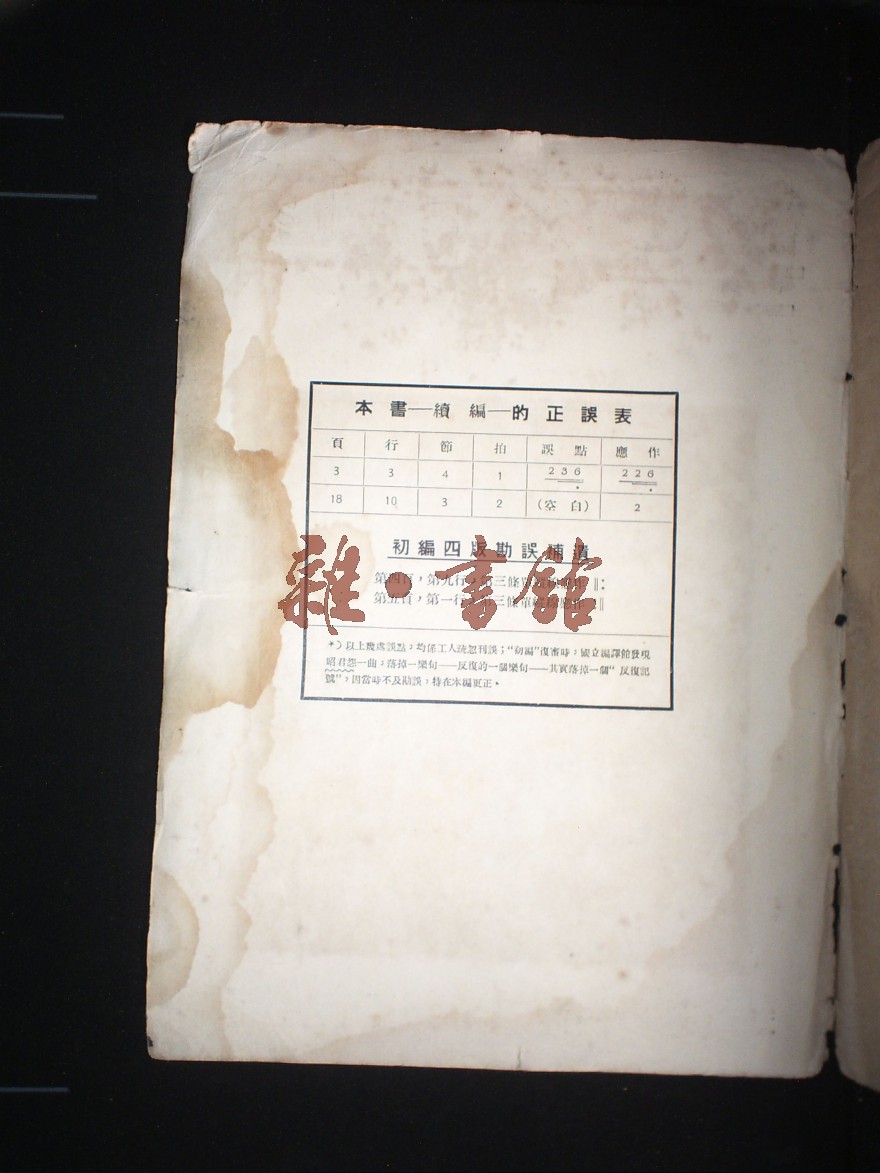 本書—續編—的正誤表
頁 行 節 拍 誤點 應作
3 3 4 1 236 226
18 10 3 2 (空白) 2
初編四版勘誤補遺
第四頁,第九行,第三條單縱線應作‖:
第五頁,第一行,第三條單縱線應作:‖
雜·書館
*)以上幾處誤點,均係工人疏忽刊誤;“初編”復審時,國立編譯館發現
昭君怨一曲,落掉一樂句——反復的一個樂句——其實落掉一個“反復記
號”,因當時不及勘誤,特在本編更正。